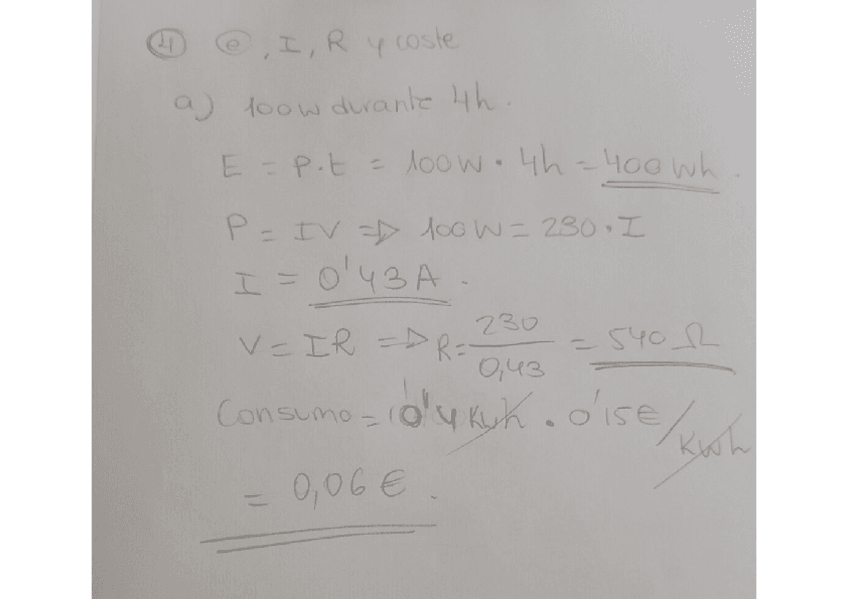 ④ ⓔ, I, R y coste
a) 100w durante 4h.
E = P.t = 100W · 4h = 400 Wh.
P = IV => 100W = 230 · I
I = 0'43A.
V = IR => R = 230/0,43 = 540 Ω
Consumo = 0'4 Kwh · 0'15€/Kwh
= 0,06 €.